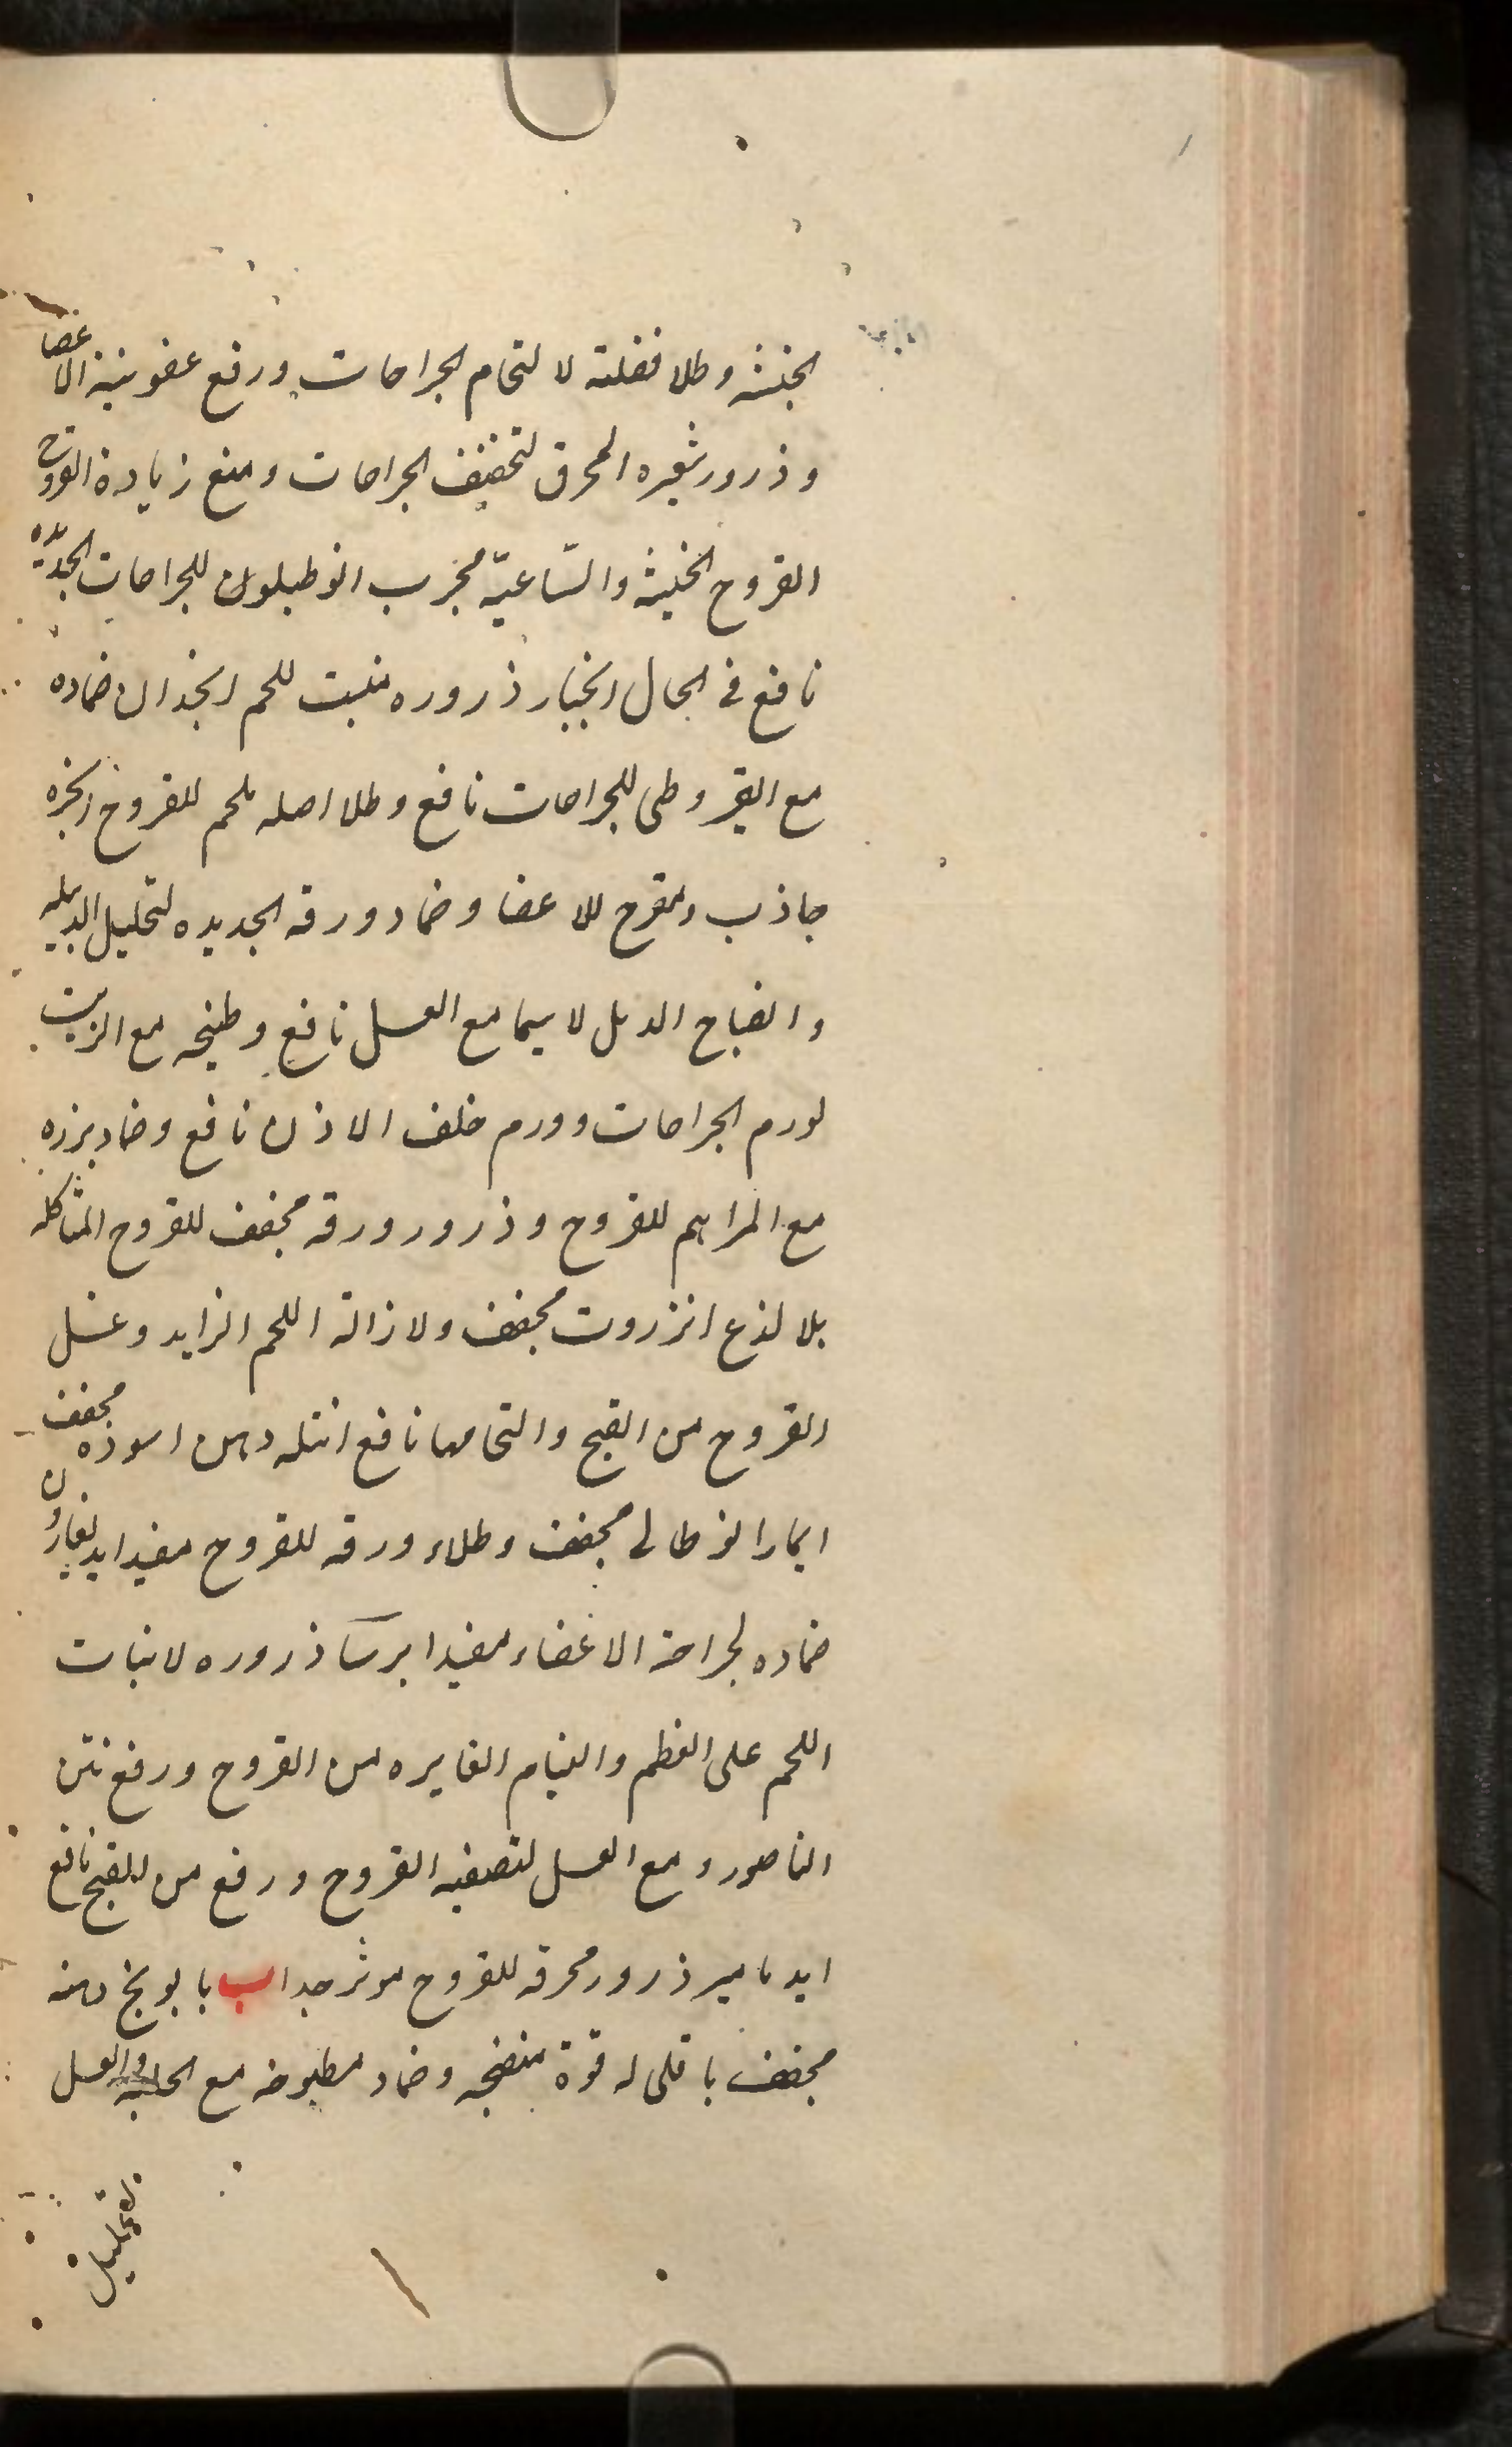 الخبيثه وطلا فضلته لالتحام الجراحات ورفع عفونية الاعضا
وذرور شعيره المحرق لتخفيف الجراحات ومنع زيادة القروح
القروح الخبيثه والسّاعيّه مجرب انوطيلون للجراحات الجديّده
نافع في الحال انجبار ذروره منبت للحم انجدان ضماده
مع القيروطى للجراحات نافع وطلا اصله ملحم للقروح انجره
جاذب ومقرح للاعضا وضماد ورقه الجديده لتحليل الدبيله
وانضاج الدمل لاسيما مع العسل نافع وطبخه مع الزيت
لورم الجراحات وورم خلف الاذن نافع وضماد بزره
مع المراهم للقروح وذرور ورقه مجفف للقروح المتاكله
بلا لذع انزروت مجفف ولازالة اللحم الزايد وغسل
القروح من القيح والتحامها نافع انتله دهن اسوده مجفف
ايمارا نوطالى مجفف وطلاء ورقه للقروح مفيد ايدیغارون
ضماده لجراحة الاعضاء مفيد ايرسا ذروره لانبات
اللحم على العظم والتيام الغايره من القروح ورفع نتن
الناصور ومع العسل لتصفيه القروح ورفع من القيح نافع
ايدمامير ذرور محرقه للقروح موثر جدا ب بابونج دهنه
مجفف باقلى له قوة منضجه وضماد مطبوخه مع الحلبه والعسل
لتحليل